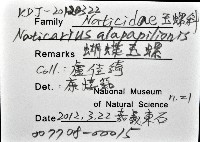 KDJ-20120322
Family Naticidae 玉螺科
Naticarius alapapilionis
Remarks 蝴蝶玉螺
Coll.: 盧佳綺
Det.: 康
National Museum
of Natural Science n.=1
Date 2012.3.22 嘉義東石
007708-00015